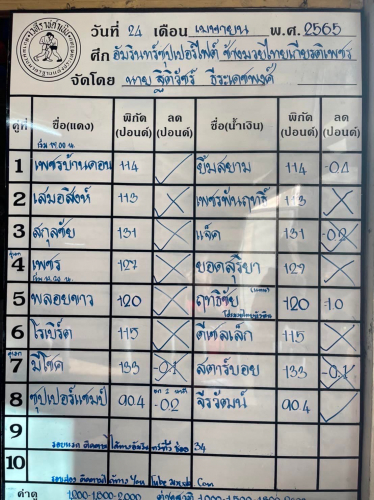 วันที่ 24 เดือน เมษายน พ.ศ. 2565
ศึก อัมรินทร์ซุปเปอร์ไฟต์ ช้างมวยไทยเกียรติเพชร
จัดโดย นาย ฐิติวัชร์ ธีระเดชพงศ์
คู่ที่ ชื่อ(แดง) พิกัด (ปอนด์) ลด (ปอนด์) ชื่อ(น้ำเงิน) พิกัด (ปอนด์) ลด (ปอนด์)
1 เพชรบ้านดอน 114 ยิ้มสยาม 114 -0.4
2 เสมอสิงห์ 113 เพชรพันฤทธิ์ 113
3 สกุลชัย 131 แจ็ค 131 -0.2
4 เพชร 127 ยอดสุริยา 127
5 พลอยขาว 120 ฤทธิชัย 120 -1.0
6 โรเบิร์ต 115 ดีเซลเล็ก 115
7 มีโชค 133 -0.1 สตาร์บอย 133 -0.1
8 ซุปเปอร์แชมป์ 90.4 -0.2 จีรวัฒน์ 90.4
9
34
10
You Tube .Com
ค่าดู 1,000-1,500-2,000